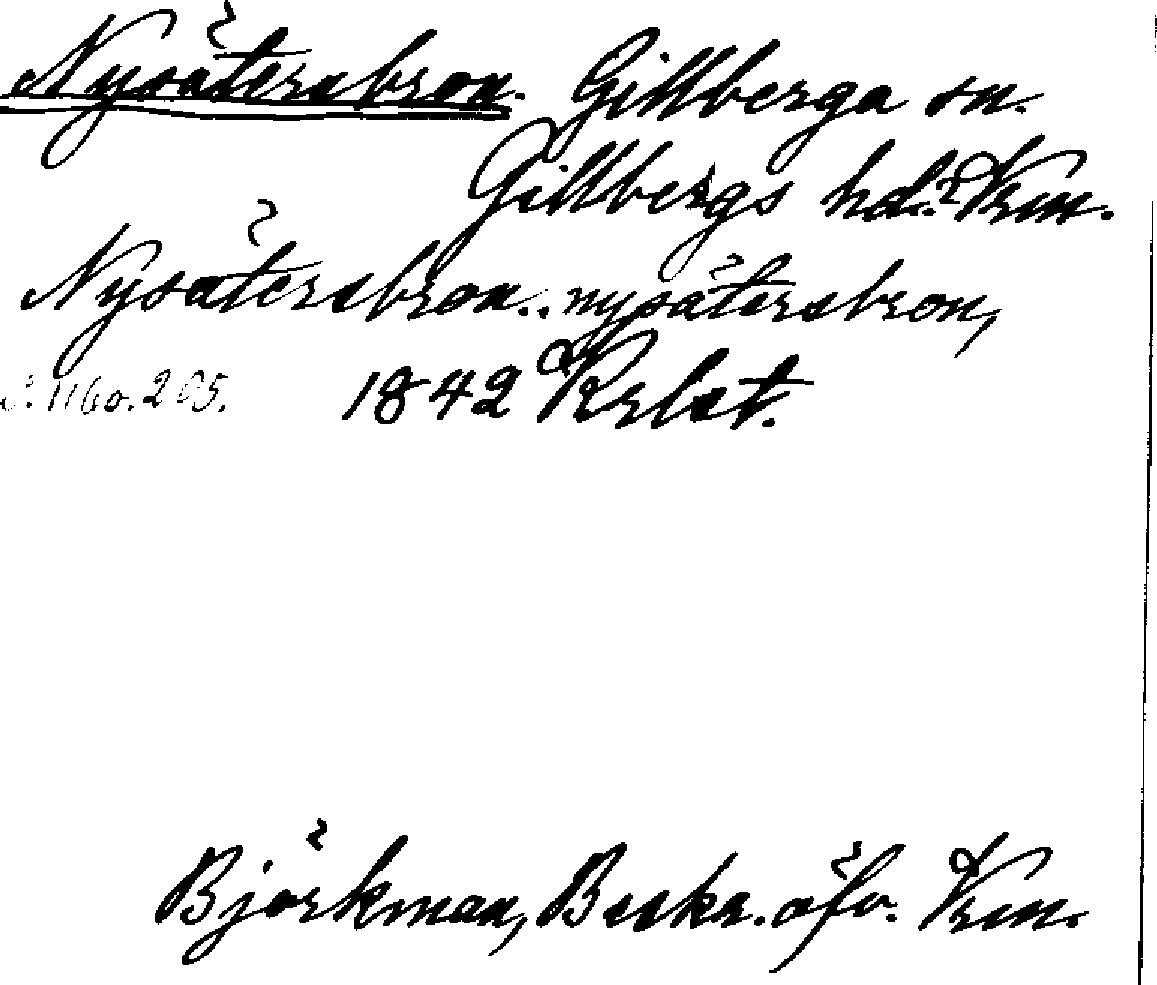 Nysätersbron. Gillberga sn.
Gillbergs hd. Vrm.
Nysätersbron.. nysätersbron,
s. 116 o. 205. 1842 Krlst.
Björkman, Beskr. öfv. Vrm.